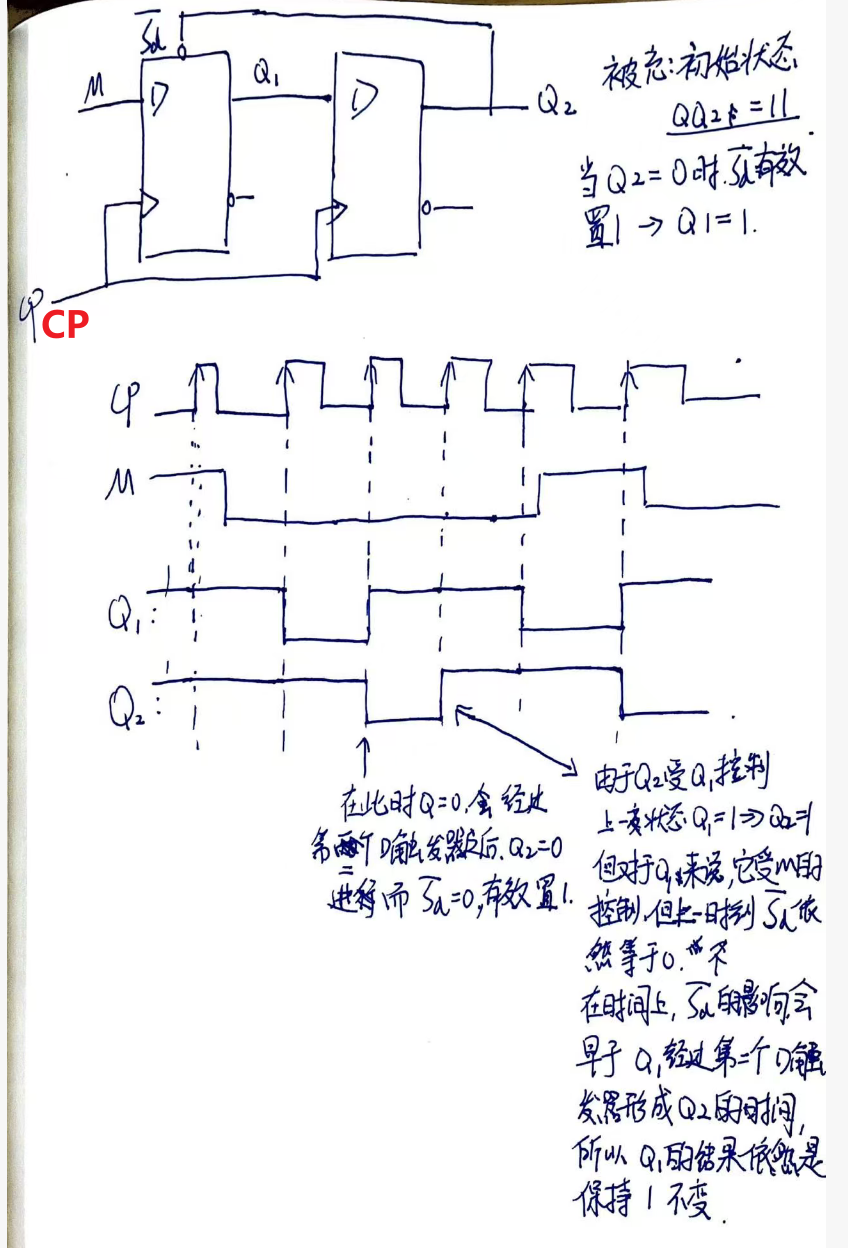 S̅d
M
D
Q₁
D
Q₂
CP
CP
初始状态
QQ2 = 11
当Q2=0时.S̅d有效
置1 → Q1=1.
CP
M
1
Q₁:
1
Q₂:
在此时Q=0,会经过
第二个D触发器后.Q2=0
进而 S̅d=0,有效置1.
由于Q2受Q₁控制
上一刻状态Q₁=1⇒Q2=1
但对于Q₁来说,它受M的
控制,但上一时刻S̅d依
然等于0.
在时间上,S̅d的影响会
早于Q₁经过第二个D触
发器形成Q2的时间,
所以Q₁的结果依然是
保持1不变.